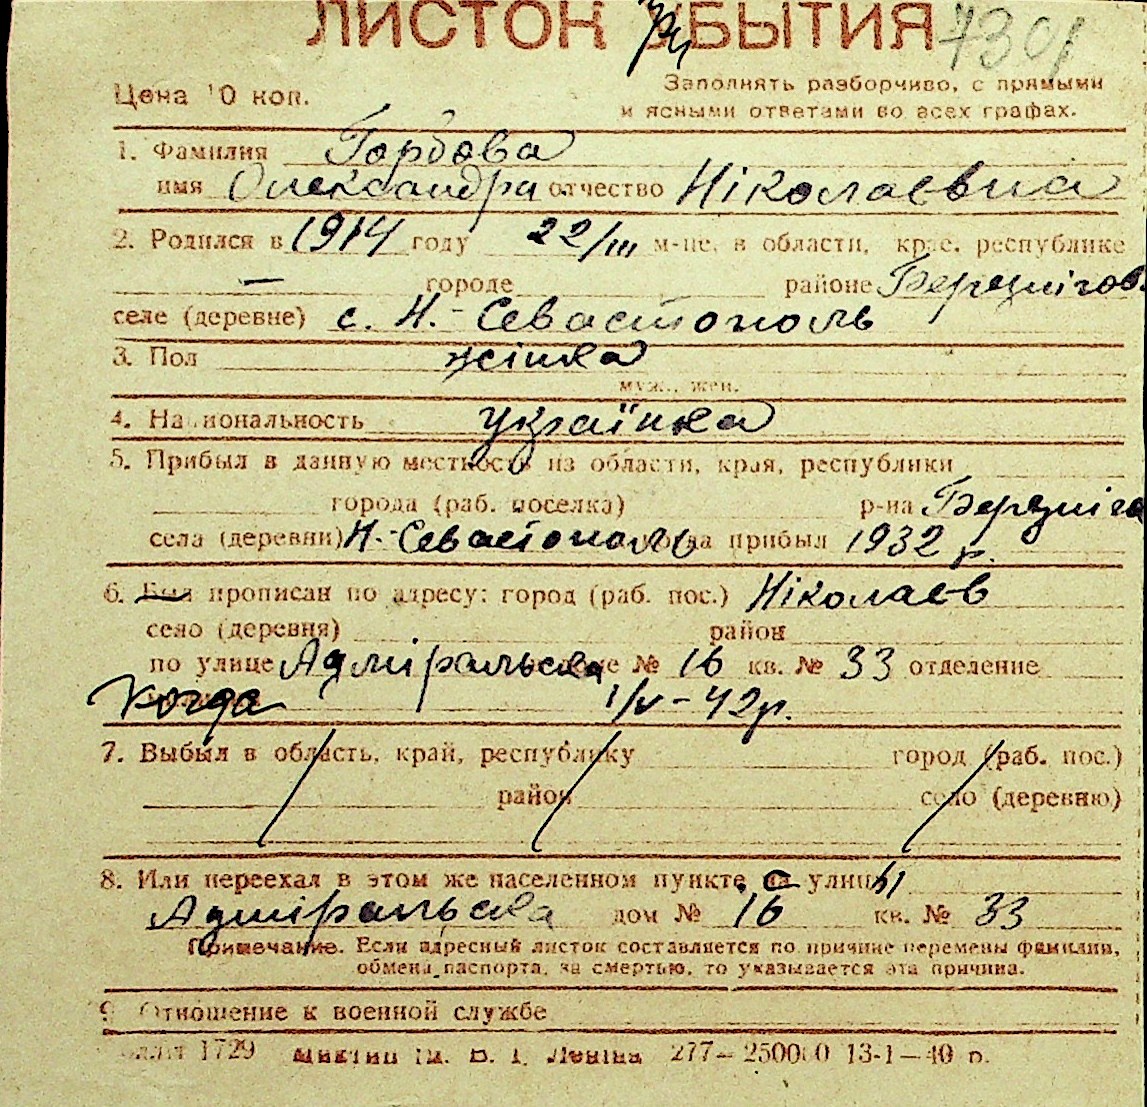 ЛИСТОК УБЫТИЯ 7301
Цена 10 коп.
Заполнять разборчиво, с прямыми
и ясными ответами во всех графах.
1. Фамилия Горбова
имя Олександра отчество Ніколаєвна
2. Родился в 1914 году 22/III м-це, в области, крае, республике
— городе районе Березнігов.
селе (деревне) с. Н.-Севастополь
3. Пол жінка
муж., жен.
4. Национальность українка
5. Прибыл в данную местность из области, края, республики
города (раб. поселка) р-на Березніго
села (деревни) Н.-Севастополь когда прибыл 1932 р.
6. Был прописан по адресу: город (раб. пос.) Ніколаєв
село (деревня) район
по улице Адміральська № 16 кв. № 33 отделение
Когда 1/V-42р.
7. Выбыл в область, край, республику город (раб. пос.)
район село (деревню)
8. Или переехал в этом же населенном пункте с улицы
Адміральська дом № 16 кв. № 33
Примечание. Если адресный листок составляется по причине перемены фамилии,
обмена паспорта, за смертью, то указывается эта причина.
9. Отношение к военной службе
1729 ім. В. І. Леніна 277—250000 13-1—40 р.